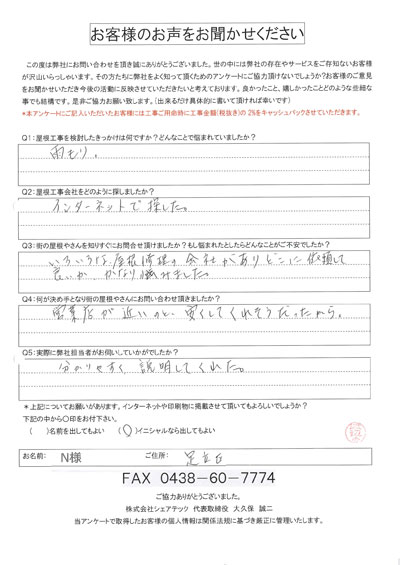 お客様のお声をお聞かせください
この度は弊社にお問い合わせを頂き誠にありがとうございました。世の中には弊社の存在やサービスをご存知ないお客様
が沢山いらっしゃいます。その方たちに弊社をよく知って頂くためのアンケートにご協力頂けないでしょうか？お客様のご意見
をお聞かせいただき今後の活動に反映させていただきたいと考えております。良かったことこと、嬉しかったことどのような些細な
事でも結構です。是非ご協力お願い致します。（出来るだけ具体的に書いて頂ければ幸いです）
*本アンケートにご記入いただいたお客様には工事ご用命時に工事金額(税抜き)の2%をキャッシュバックさせていただきます。
Q1：屋根工事を検討したきっかけは何ですか？どんなことで悩まれていましたか？
雨もり。
Q2：屋根工事会社をどのように探しましたか？
インターネットで探した。
Q3：街の屋根やさんを知りすぐにお問合せ頂けましたか？もし悩まれたとしたらどんなことがご不安でしたか？
いろいろな屋根修理の会社がありどこに依頼して
良いか かなり悩みました。
Q4：何が決め手となり街の屋根やさんにお問い合わせ頂きましたか？
営業店が近いのと、安くしてくれそうだったから。
Q5：実際に弊社担当者がお伺いしていかがでしたか？
分かりやすく説明してくれた。
＊上記についてお願いがあります。インターネットや印刷物に掲載させて頂いてもよろしいでしょうか？
下記の中から〇印をお付下さい。
（　）名前を出してもよい （〇）イニシャルなら出してもよい
お名前： N様 ご住所： 足立区
FAX 0438-60-7774
ご協力ありがとうございました。
株式会社シェアテック 代表取締役 大久保 誠二
当アンケートで取得したお客様の個人情報は関係法規に基づき厳正に管理いたします。